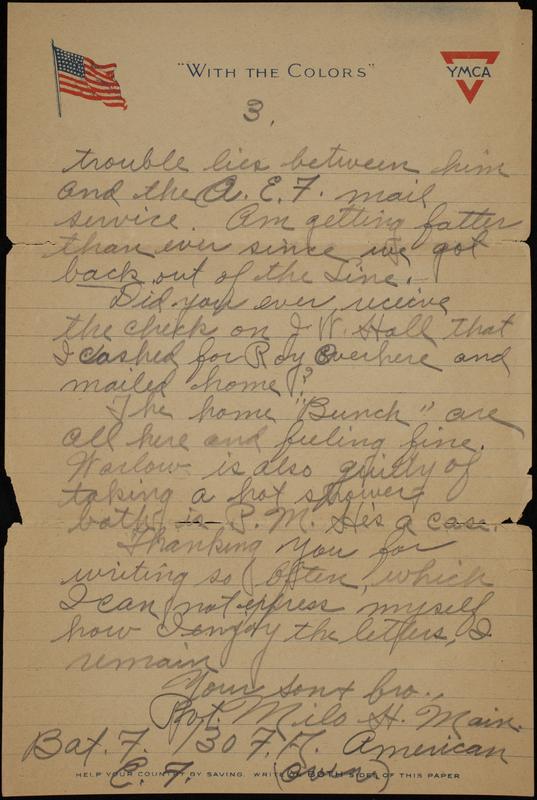 "WITH THE COLORS"
YMCA
3.
trouble lies between him
and the A. E. F. mail
service. Am getting fatter
than ever since we got
back out of the Line.
Did you ever receive
the check on J. W. Hall that
I cashed for Roy Overhere and
mailed home?
The home "Bunch" are
all here and feeling fine.
Warlow is also guilty of
taking a hot shower
bath, is P. M. He's a case.
Thanking you for
writing so often, which
I can not express myself
how I enjoy the letters, I
remain
Your son & bro.,
Pvt. Milo H. Main.
Bat. F. 130 F. A. American
E. F. (Over)
HELP YOUR COUNTRY BY SAVING. WRITE ON BOTH SIDES OF THIS PAPER